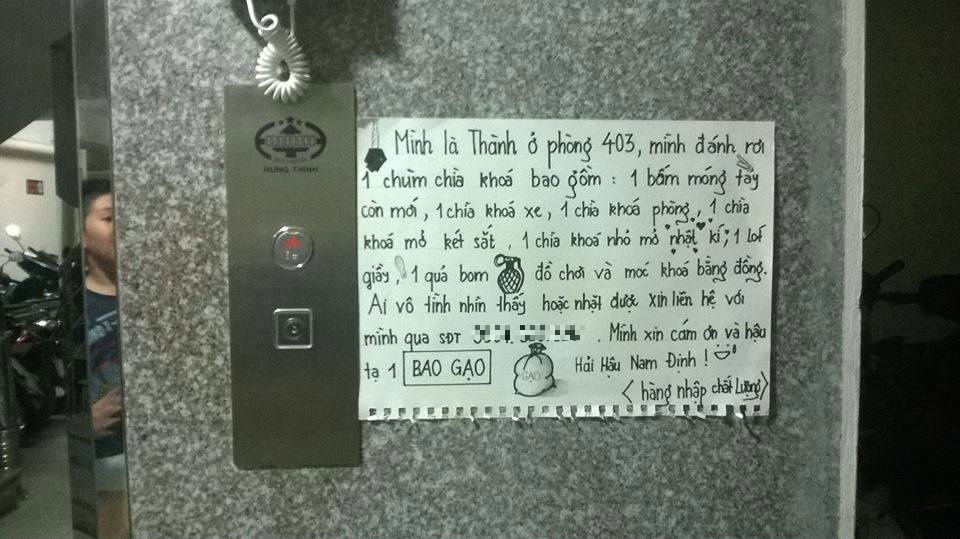 HƯNG THỊNH
Mình là Thành ở phòng 403, mình đánh rơi
1 chùm chìa khoá bao gồm : 1 bấm móng tay
còn mới, 1 chìa khoá xe, 1 chìa khoá phòng, 1 chìa
khoá mở két sắt, 1 chìa khoá nhỏ mở nhật kí, 1 lót
giầy, 1 quả bom đồ chơi và móc khoá bằng đồng.
Ai vô tình nhìn thấy hoặc nhặt được xin liên hệ với
mình qua SĐT . Mình xin cám ơn và hậu
tạ 1 BAO GẠO GẠO Hải Hậu Nam Định !
< hàng nhập chất lượng >